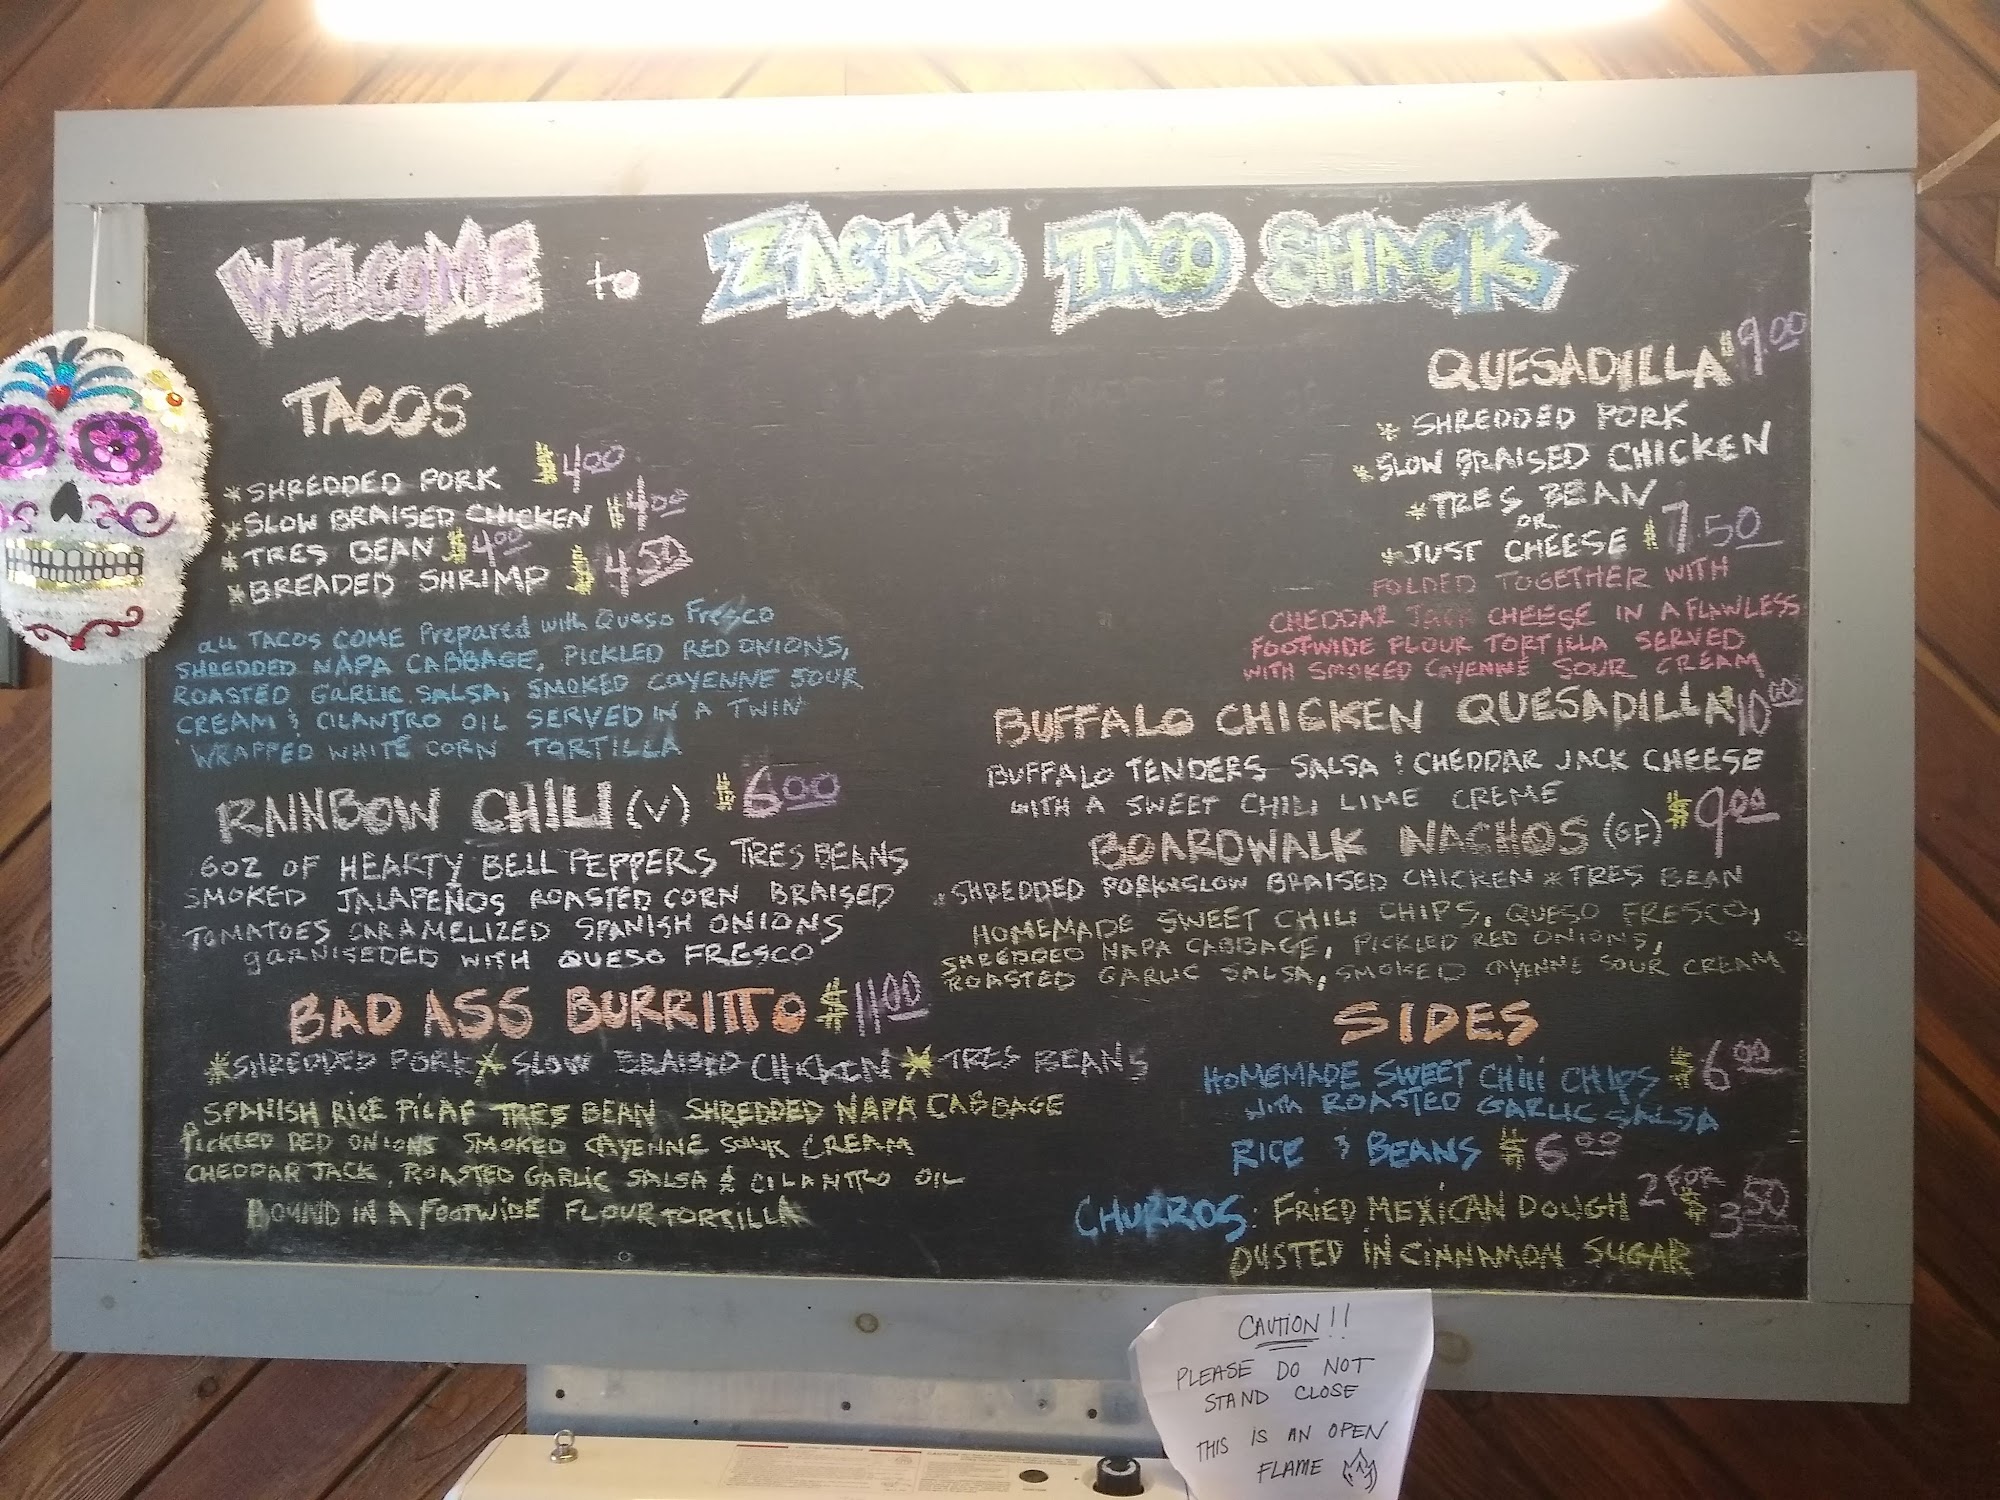 WELCOME to ZACK'S TACO SHACK
TACOS
*SHREDDED PORK $4.00
*SLOW BRAISED CHICKEN $4.00
*TRES BEAN $4.00
*BREADED SHRIMP $4.50
all TACOS COME Prepared with Queso Fresco
SHREDDED NAPA CABBAGE, PICKLED RED ONIONS,
ROASTED GARLIC SALSA, SMOKED CAYENNE SOUR
CREAM & CILANTRO OIL SERVED IN A TWIN
WRAPPED WHITE CORN TORTILLA
RAINBOW CHILI (V) $6.00
6OZ OF HEARTY BELL PEPPERS TRES BEANS
SMOKED JALAPEÑOS ROASTED CORN BRAISED
TOMATOES CARAMELIZED SPANISH ONIONS
GARNISEDED WITH QUESO FRESCO
BAD ASS BURRITTO $11.00
*SHREDDED PORK * SLOW BRAISED CHICKEN * TRES BEANS
SPANISH RICE PILAF TRES BEAN SHREDDED NAPA CABBAGE
PICKLED RED ONIONS SMOKED CAYENNE SOUR CREAM
CHEDDAR JACK, ROASTED GARLIC SALSA & CILANTRO OIL
BOUND IN A FOOTWIDE FLOUR TORTILLA
QUESADILLA $9.00
* SHREDDED PORK
*SLOW BRAISED CHICKEN
*TRES BEAN
OR
*JUST CHEESE $7.50
FOLDED TOGETHER WITH
CHEDDAR JACK CHEESE IN A FLAWLESS
FOOTWIDE FLOUR TORTILLA SERVED
WITH SMOKED CAYENNE SOUR CREAM
BUFFALO CHICKEN QUESADILLA $10.00
BUFFALO TENDERS SALSA & CHEDDAR JACK CHEESE
WITH A SWEET CHILI LIME CREME
BOARDWALK NACHOS (GF) $9.00
*SHREDDED PORK*SLOW BRAISED CHICKEN *TRES BEAN
HOMEMADE SWEET CHILI CHIPS, QUESO FRESCO,
SHREDDED NAPA CABBAGE, PICKLED RED ONIONS,
ROASTED GARLIC SALSA, SMOKED CAYENNE SOUR CREAM
SIDES
HOMEMADE SWEET CHILI CHIPS $6.00
with ROASTED GARLIC SALSA
RICE & BEANS $6.00
CHURROS: FRIED MEXICAN DOUGH 2 FOR $3.50
DUSTED IN CINNAMON SUGAR
CAUTION!!
PLEASE DO NOT
STAND CLOSE
THIS IS AN OPEN
FLAME